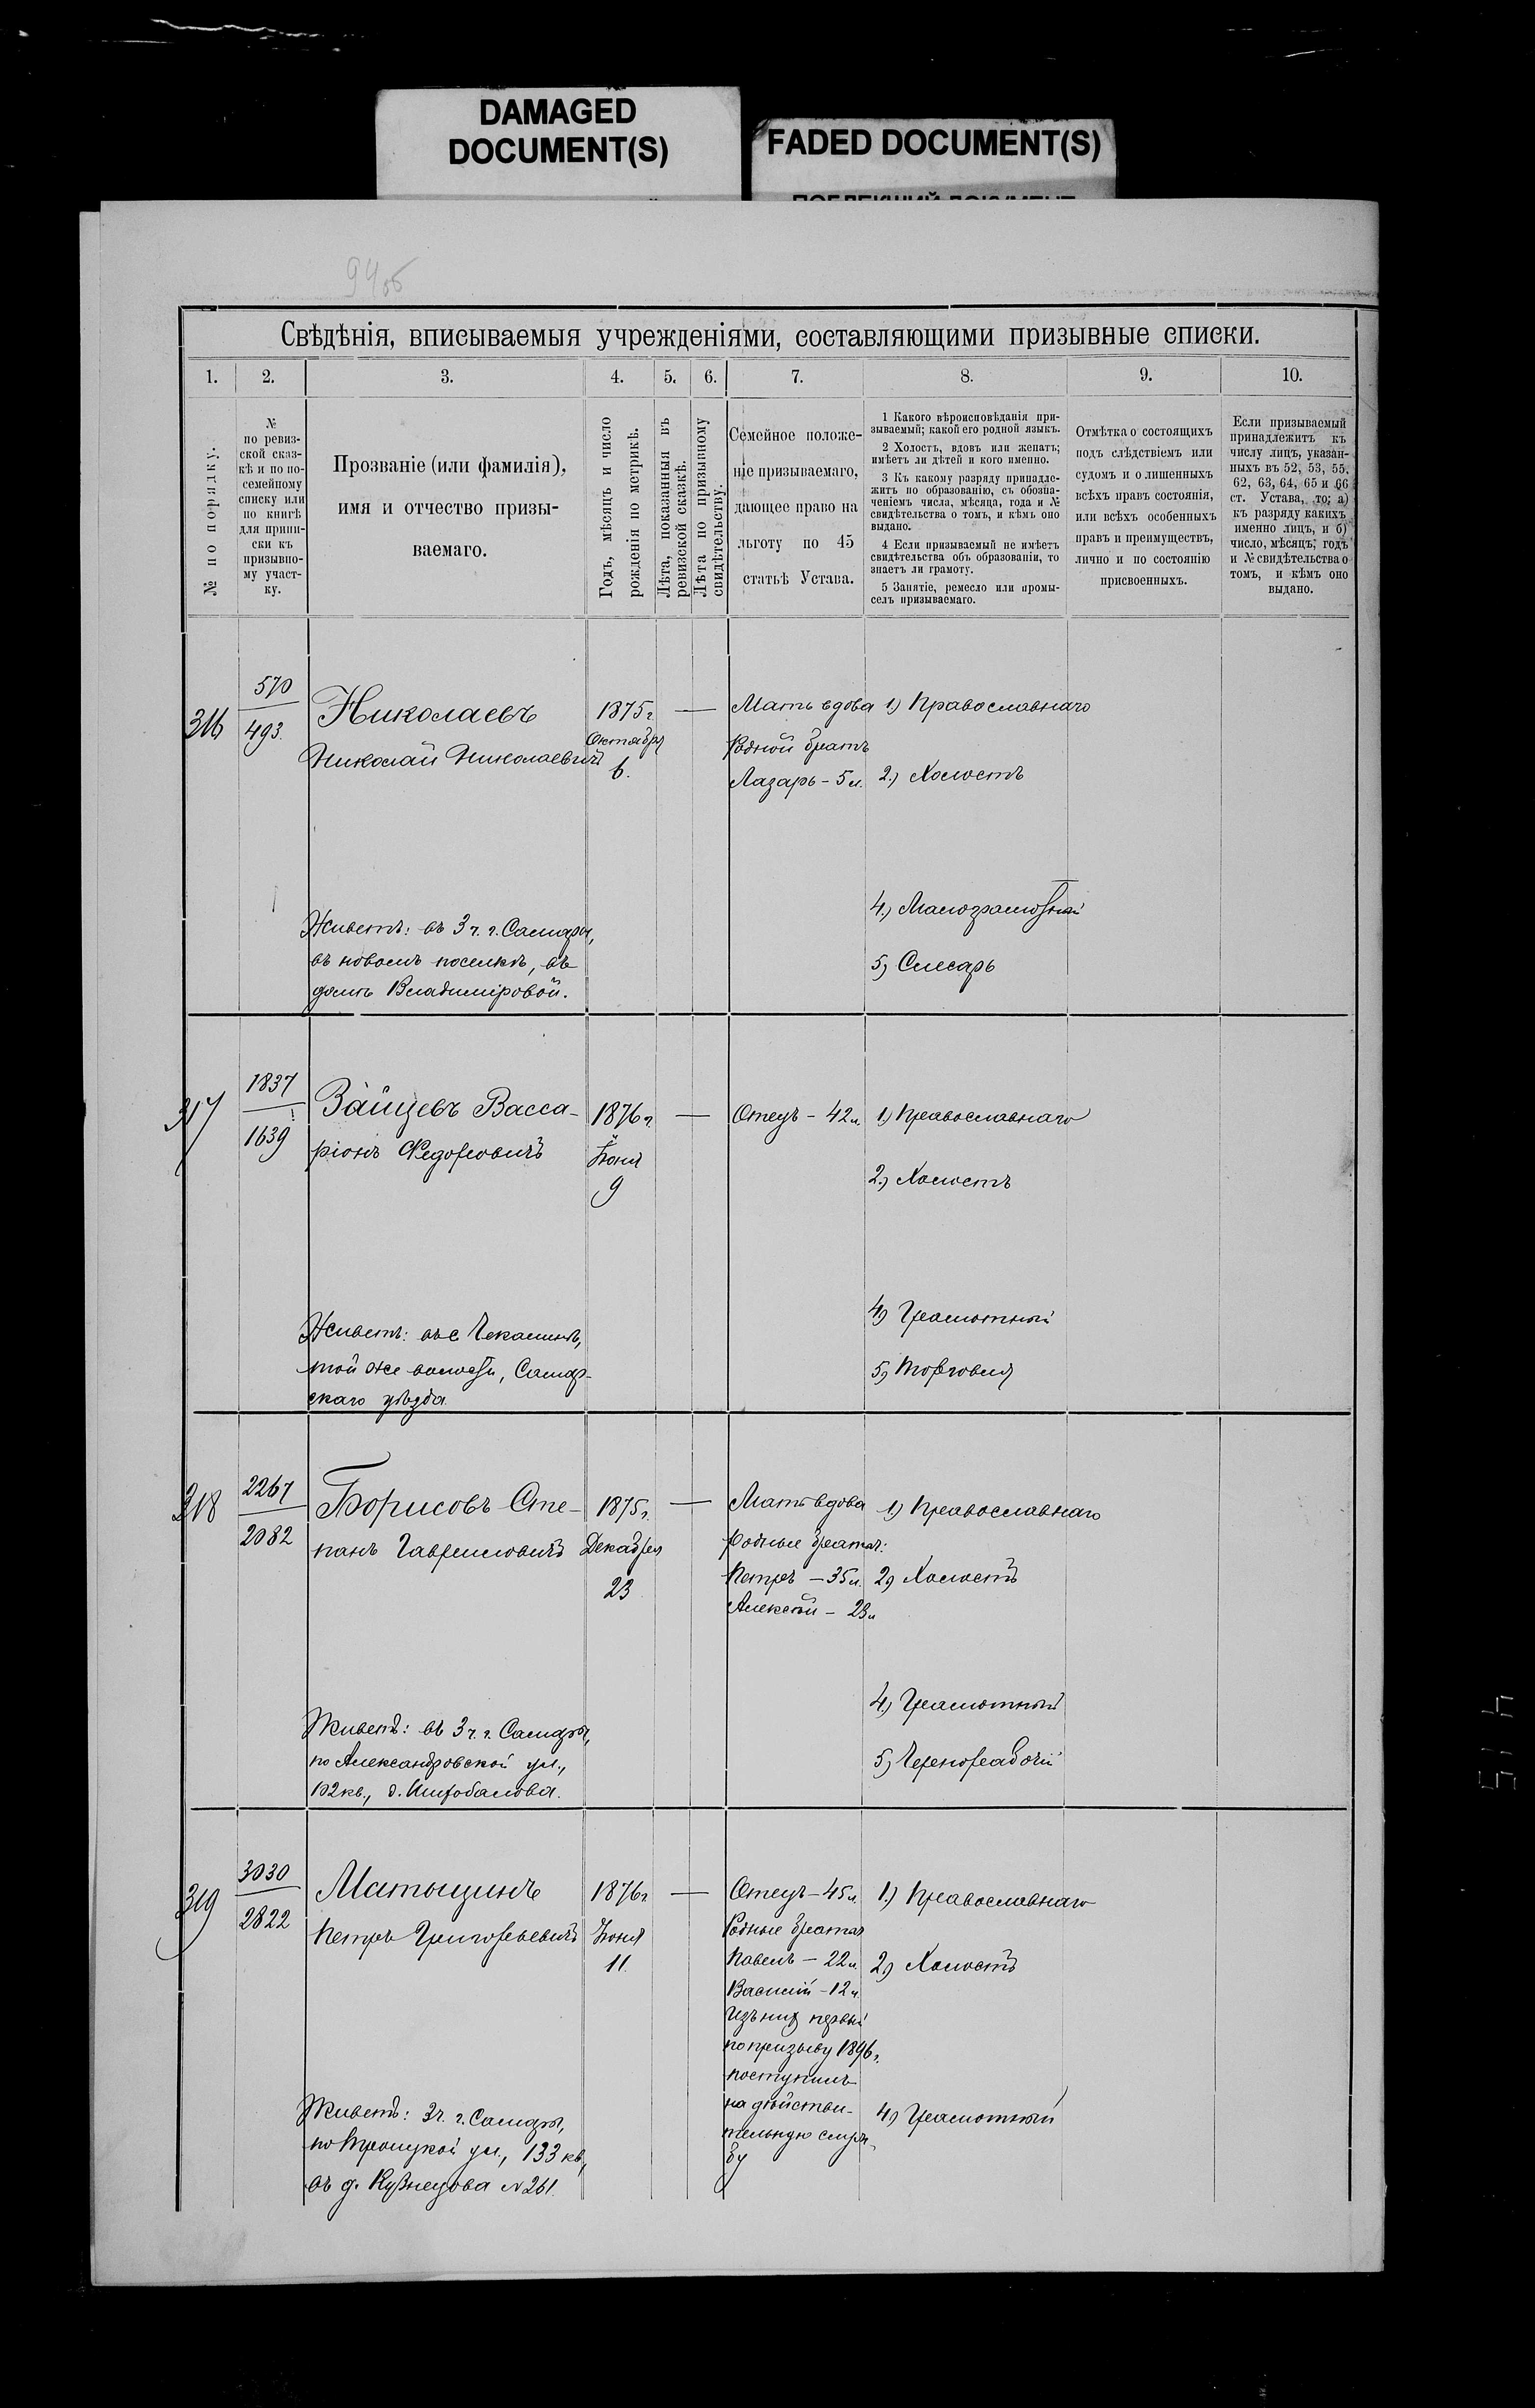 DAMAGED
DOCUMENT(S)
FADED DOCUMENT(S)
94об
Свѣдѣнія, вписываемыя учрежденіями, составляющими призывные списки.
1.
2.
3.
4.
5.
6.
7.
8.
9.
10.
№ по порядку.
№
по ревиз-
ской сказ-
кѣ и по по-
семейному
списку или
по книгѣ
для припи-
ски къ
призывно-
му участ-
ку.
Прозваніе (или фамилія),
имя и отчество призы-
ваемаго.
Годъ, мѣсяцъ и число
рожденія по метрикѣ.
Лѣта, показанныя въ
ревизской сказкѣ.
Лѣта по призывному
свидѣтельству.
Семейное положе-
ніе призываемаго,
дающее право на
льготу по 45
статьѣ Устава.
1 Какого вѣроисповѣданія при-
зываемый; какой его родной языкъ.
2 Холостъ, вдовъ или женатъ;
имѣетъ ли дѣтей и кого именно.
3 Къ какому разряду принадле-
житъ по образованію, съ обозна-
ченіемъ числа, мѣсяца, года и №
свидѣтельства о томъ, и кѣмъ оно
выдано.
4 Если призываемый не имѣетъ
свидѣтельства объ образованіи, то
знаетъ ли грамоту.
5 Занятіе, ремесло или промы-
селъ призываемаго.
Отмѣтка о состоящихъ
подъ слѣдствіемъ или
судомъ и о лишенныхъ
всѣхъ правъ состоянія,
или всѣхъ особенныхъ
правъ и преимуществъ,
лично и по состоянію
присвоенныхъ.
Если призываемый
принадлежитъ къ
числу лицъ, указан-
ныхъ въ 52, 53, 55,
62, 63, 64, 65 и 66
ст. Устава, то; а)
къ разряду какихъ
именно лицъ, и б)
число, мѣсяцъ, годъ
и № свидѣтельства о
томъ, и кѣмъ оно
выдано.
316
570
493.
Николаевъ
Николай Николаевичъ
1875 г.
Октября
6.
Мать вдова
Родной братъ
Лазарь - 5 л.
1) Православнаго
2.) Холостъ
4.) Малограмотный
5) Слесарь
Живетъ: въ 3 ч. г. Самары,
въ новомъ поселкѣ, въ
домѣ Владиміровой.
317
1837
1639
Зайцевъ Васса-
ріонъ Федоровичъ
1876 г
Іюня
9
Отецъ - 42 л.
1) Православнаго
2.) Холостъ
4) Грамотный
5) Торговля
Живетъ: въ с.
той же волости, Самар-
скаго уѣзда.
318
2267
2082
Борисовъ Сте-
панъ Гавриловичъ
1875 г.
Декабря
23
Мать вдова
родные братья:
Петръ - 35 л.
Алексѣй - 23 л
1) Православнаго
2) Холостъ
4.) Грамотный
5) Чернорабочій
Живетъ: въ 3 ч. г. Самары,
по Александровской ул.,
102 кв., д.
319
3030
2822
Матыцинъ
Петръ Григорьевичъ
1876 г
Іюня
11.
Отецъ - 45 л.
Родные братья
Павелъ - 22 л.
Василій - 12 л.
Изъ нихъ первый
по призыву 1896 г.
поступилъ
на дѣйстви-
тельную служ-
бу
1.) Православнаго
2) Холостъ
4) Грамотный
Живетъ: 3 ч. г. Самары,
по Троицкой ул., 133 кв,
въ д. Кузнецова № 261.